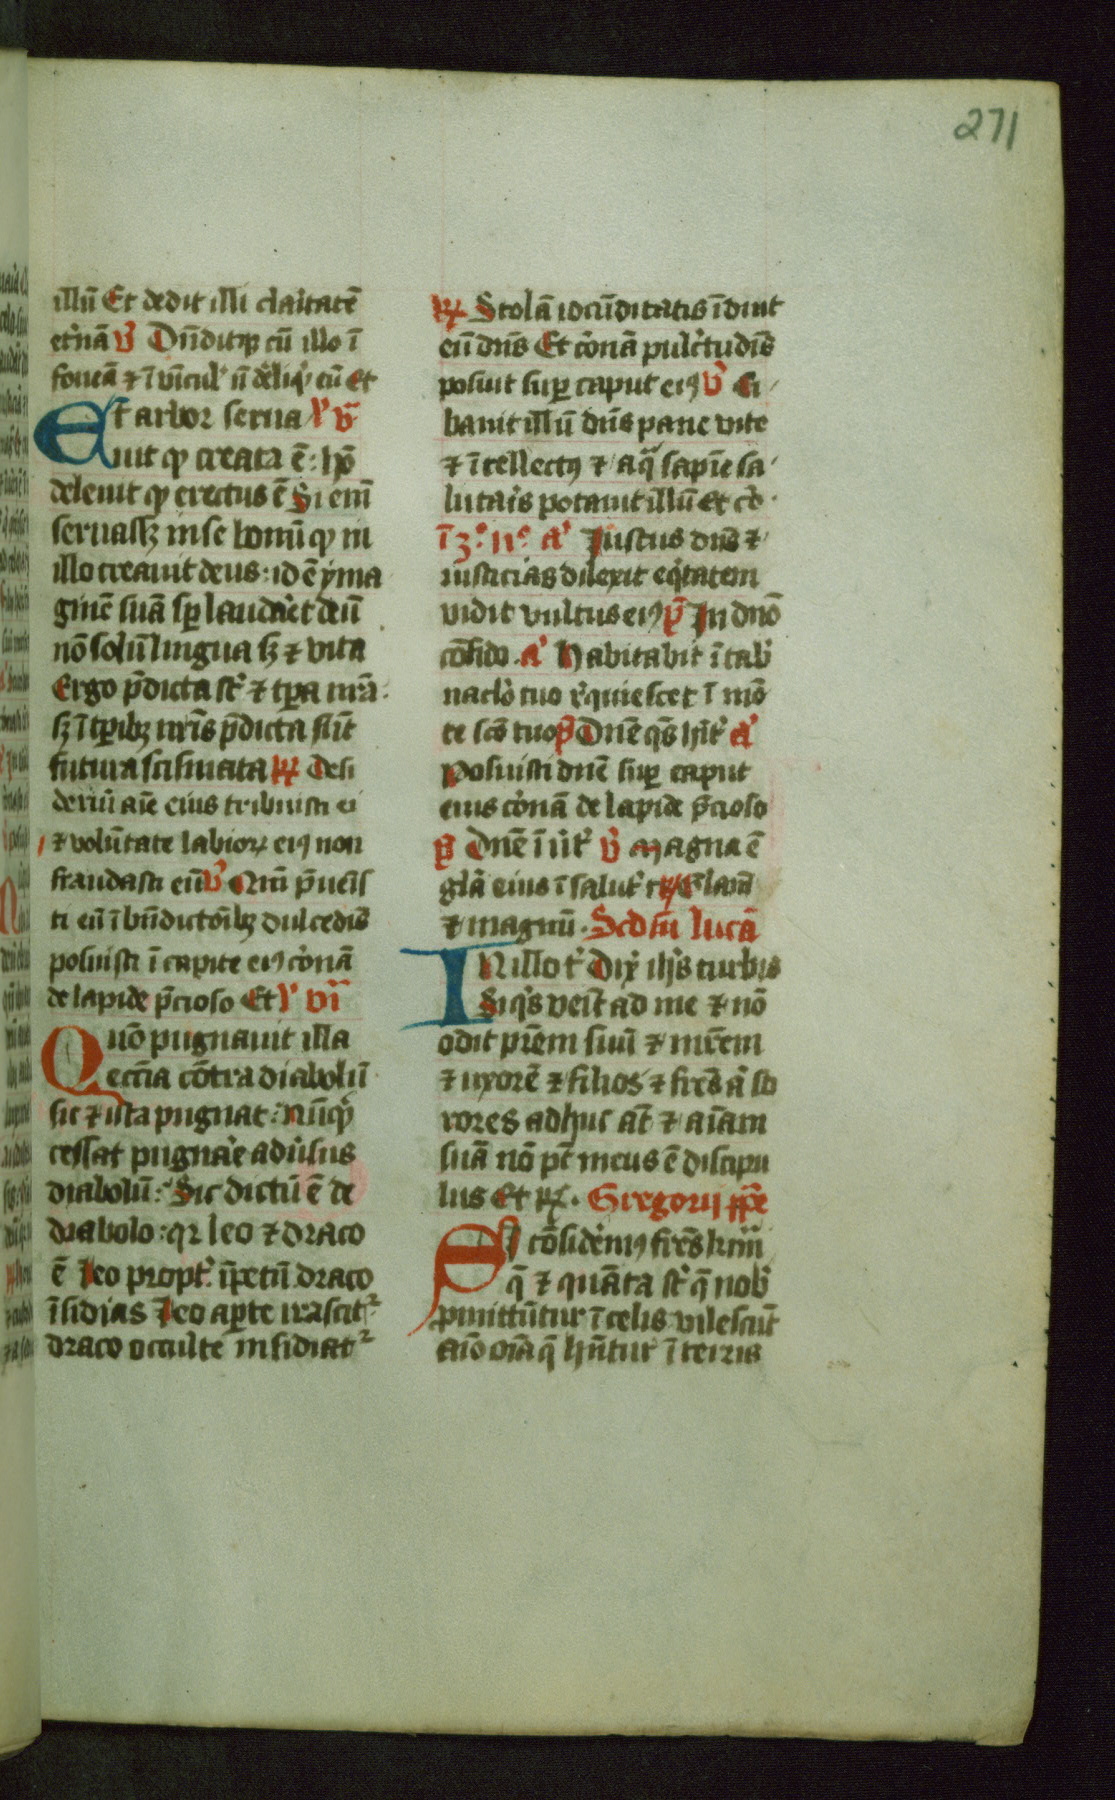 271
illū Et dedit illi claritatē
et'nā v̓ Dn̄ditqꝫ cū illo ī
foueā ⁊ ī vīcul' n̄ de̓liq̇ eū Et
Et arbor serua l' v̄
uit qꝫ creata ē: hō
deleuit qꝫ erectus ē Si enī
seruassꝫ in se bonū qꝫ in
illo creauit deus: id ē yma
ginē suā sꝑ laudaret deū
nō solū lingua sꝫ ⁊ vita
Ergo p̄dicta sꝉ ⁊ tꝑa nr̄a
sꝫ ī tꝑibꝫ nr̄is p̄dicta sūt
futura
deriū aīe eius tribuisti ei
⁊ volūtate labioꝝ eiꝰ non
fraudasti eū v̓ Qm̄ p̄uēis
ti eū ī bn̄dictōibꝫ dulcedīs
posuisti ī capite eiꝰ corōnā
de lapide p̄cioso Et l' vī
Quō pugnauit illa
eccīa cōtra diabolū
sic ⁊ ista pugnat: nūqꝫ
cessat pugnare aduersus
diabolū: Sic dictū ē de
diabolo: qꝛ leo ⁊ draco
ē leo propt' īpetū draco
īsidias leo aꝑte irascit᷑
draco occulte insidiat᷑
℟ Stolā iocūditatis īduit
eū dn̄s Et coronā pulcritudīs
posuit suꝑ caput eiꝰ v̓ Ci
bauit illū dn̄s pane vite
⁊ ītellectꝰ ⁊ aq̄ sapīe sa
lutaris potauit illū Et co
ī 3° n° a' Iustus dn̄s ⁊
iusticias dilexit eq̇tatem
vidit vultus eiꝰ p̄ In dn̄o
cōfido a' Habitabit ī tab'
naclo tuo reqꝰiescet ī mō
te sc̄o tuo p̄ Dn̄e qīs hīt' a'
Posuisti dn̄e suꝑ caput
eius coronā de lapide p̄cioso
p̄ dn̄e ī v't' v̓ magna ē
glā eius ī salut' laud'
⁊ magnū. Scd'm lucā
In illo t' Dix̄ ih̄s turbis
Si q̇s venit ad me ⁊ nō
odit prēm suū ⁊ mrēm
⁊ uxorē ⁊ filios ⁊ frēs ⁊ so
rores adhuc āt ⁊ aīam
suā nō pt̄ meus ē discipu
lus Et ꝶ. Gregorij pp̄e
Si cōsideremꝰ frēs krm̄i
q̄ ⁊ quāta sꝉ q̄ nob'
ꝓmittūtur ī celis vilescūt
aīo oīa q̄ hn̄tur ī terris